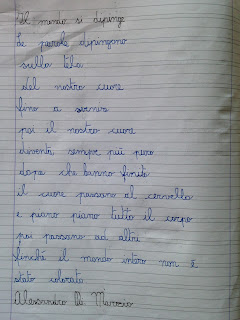 Il mondo si dipinge
Le parole dipingono
sulla tela
del nostro cuore
fino a
poi il nostro cuore
diventa sempre più puro
dopo che hanno finito
il cuore passano al cervello
e piano piano tutto il corpo
poi passano ad altri
finché il mondo intero non è
stato colorato
Alessandro